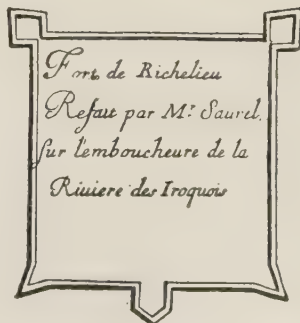 Fort de Richelieu
Refait par Mr. Saurel.
sur l'emboucheure de la
Riuiere des Iroquois